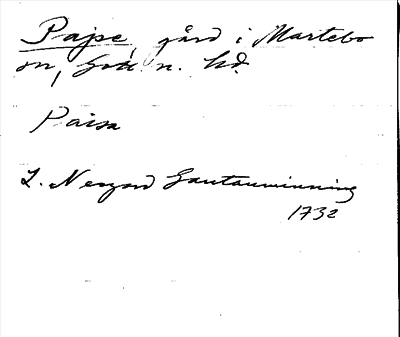 Pajse, gård i Martebo
sn, Gotl. n. hd.
Paisa
L. Neogard Gautauminning
1732